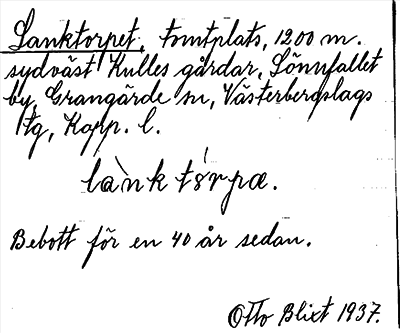 Lanktorpet, tomtplats, 1200 m.
sydväst Kulles gårdar, Sönnfallet
by, Grangärde sn, Västerbergslags
tg, Kopp. l.
lànk tórpa.
Bebott för en 40 år sedan.
Otto Blixt 1937.